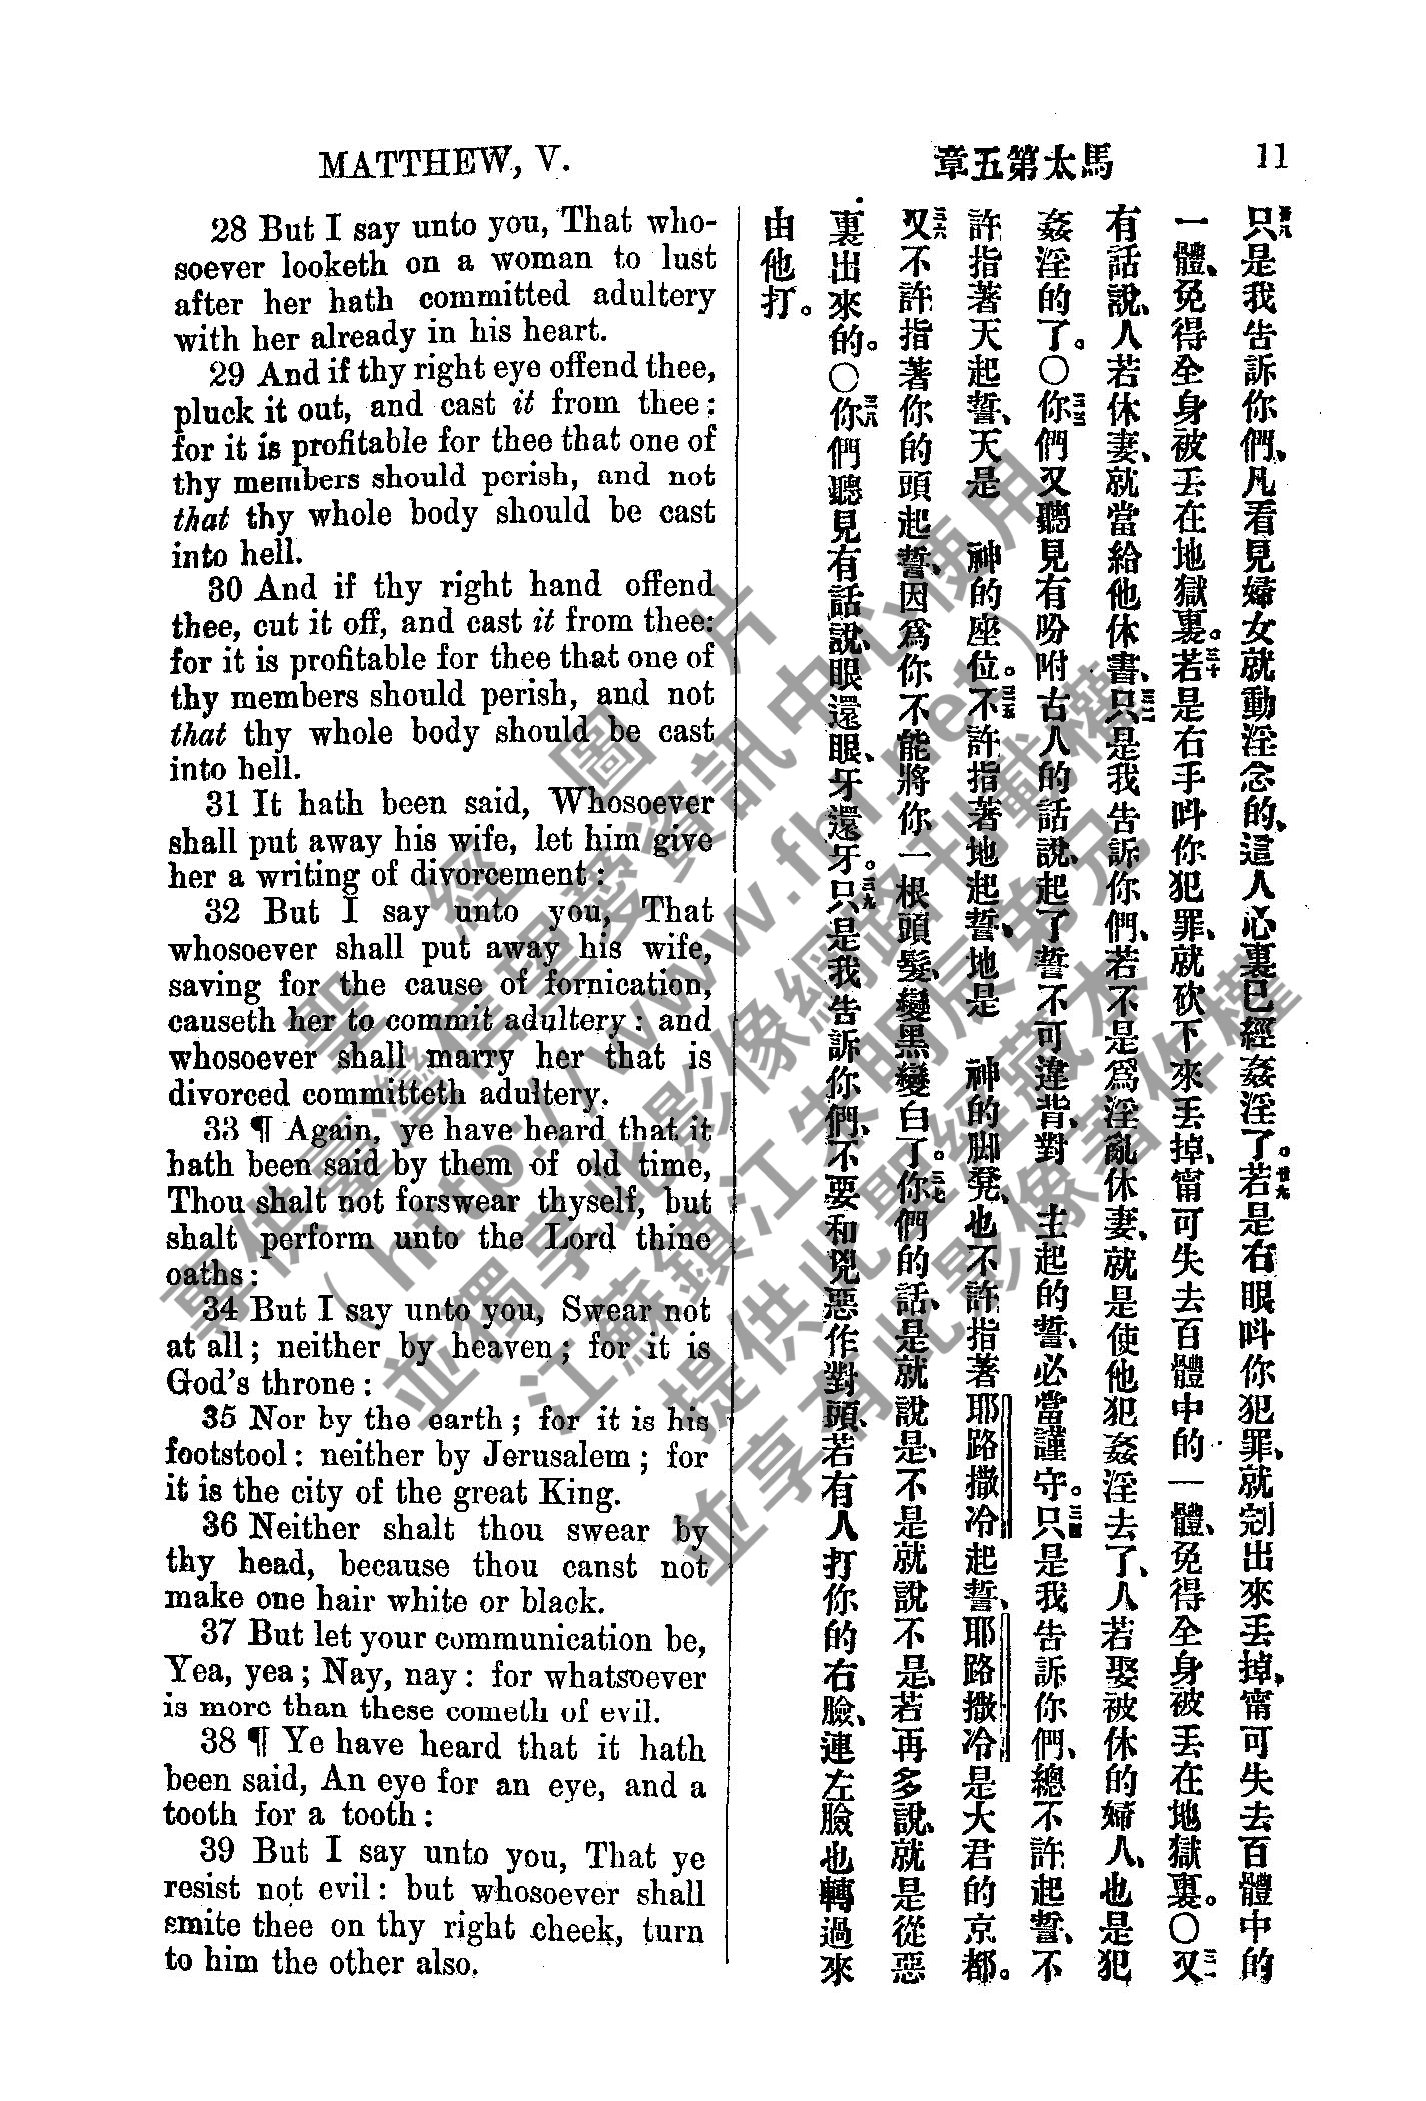 MATTHEW, V.
章五第太馬
11
28 But I say unto you, That who-
soever looketh on a woman to lust
after her hath committed adultery
with her already in his heart.
29 And if thy right eye offend thee,
pluck it out, and cast it from thee:
for it is profitable for thee that one of
thy members should perish, and not
that thy whole body should be cast
into hell.
30 And if thy right hand offend
thee, cut it off, and cast it from thee:
for it is profitable for thee that one of
thy members should perish, and not
that thy whole body should be cast
into hell.
31 It hath been said, Whosoever
shall put away his wife, let him give
her a writing of divorcement:
32 But I say unto you, That
whosoever shall put away his wife,
saving for the cause of fornication,
causeth her to commit adultery: and
whosoever shall marry her that is
divorced committeth adultery.
33 ¶ Again, ye have heard that it
hath been said by them of old time,
Thou shalt not forswear thyself, but
shalt perform unto the Lord thine
oaths:
34 But I say unto you, Swear not
at all; neither by heaven; for it is
God's throne:
35 Nor by the earth; for it is his
footstool: neither by Jerusalem; for
it is the city of the great King.
36 Neither shalt thou swear by
thy head, because thou canst not
make one hair white or black.
37 But let your communication be,
Yea, yea; Nay, nay: for whatsoever
is more than these cometh of evil.
38 ¶ Ye have heard that it hath
been said, An eye for an eye, and a
tooth for a tooth:
39 But I say unto you, That ye
resist not evil: but whosoever shall
smite thee on thy right cheek, turn
to him the other also.
只廿八是我告訴你們、凡看見婦女就動淫念的、這人心裏已經姦淫了。若廿九是右眼呌你犯罪、就剜出來丟掉、甯可失去百體中的
一體、免得全身被丟在地獄裏。若三十是右手呌你犯罪、就砍下來丟掉、甯可失去百體中的一體、免得全身被丟在地獄裏。〇又三一
有話說、人若休妻、就當給他休書、只三二是我告訴你們、若不是爲淫亂休妻、就是使他犯姦淫去了、人若娶被休的婦人、也是犯
姦淫的了。〇你三三們又聽見有吩咐古人的話說、起了誓不可違背、對 主起的誓、必當謹守。只三四是我告訴你們、總不許起誓、不
許指著天起誓、天是 神的座位。不三五許指著地起誓、地是 神的脚凳、也不許指著耶路撒冷起誓、耶路撒冷是大君的京都。
又三六不許指著你的頭起誓、因爲你不能將你一根頭髮、變黑變白了。你三七們的話、是就說是、不是就說不是、若再多說、就是從惡
裏出來的。〇你三八們聽見有話說、眼還眼、牙還牙。只三九是我告訴你們、不要和兇惡作對頭、若有人打你的右臉、連左臉也轉過來
由他打。
聖經圖片
專供臺灣信望愛資訊中心使用
（http://www.fhl.net）
並獨享此影像網路刊載權
江蘇鎮江朱明辰弟兄
提供此聖經藏本
並享有此影像著作權